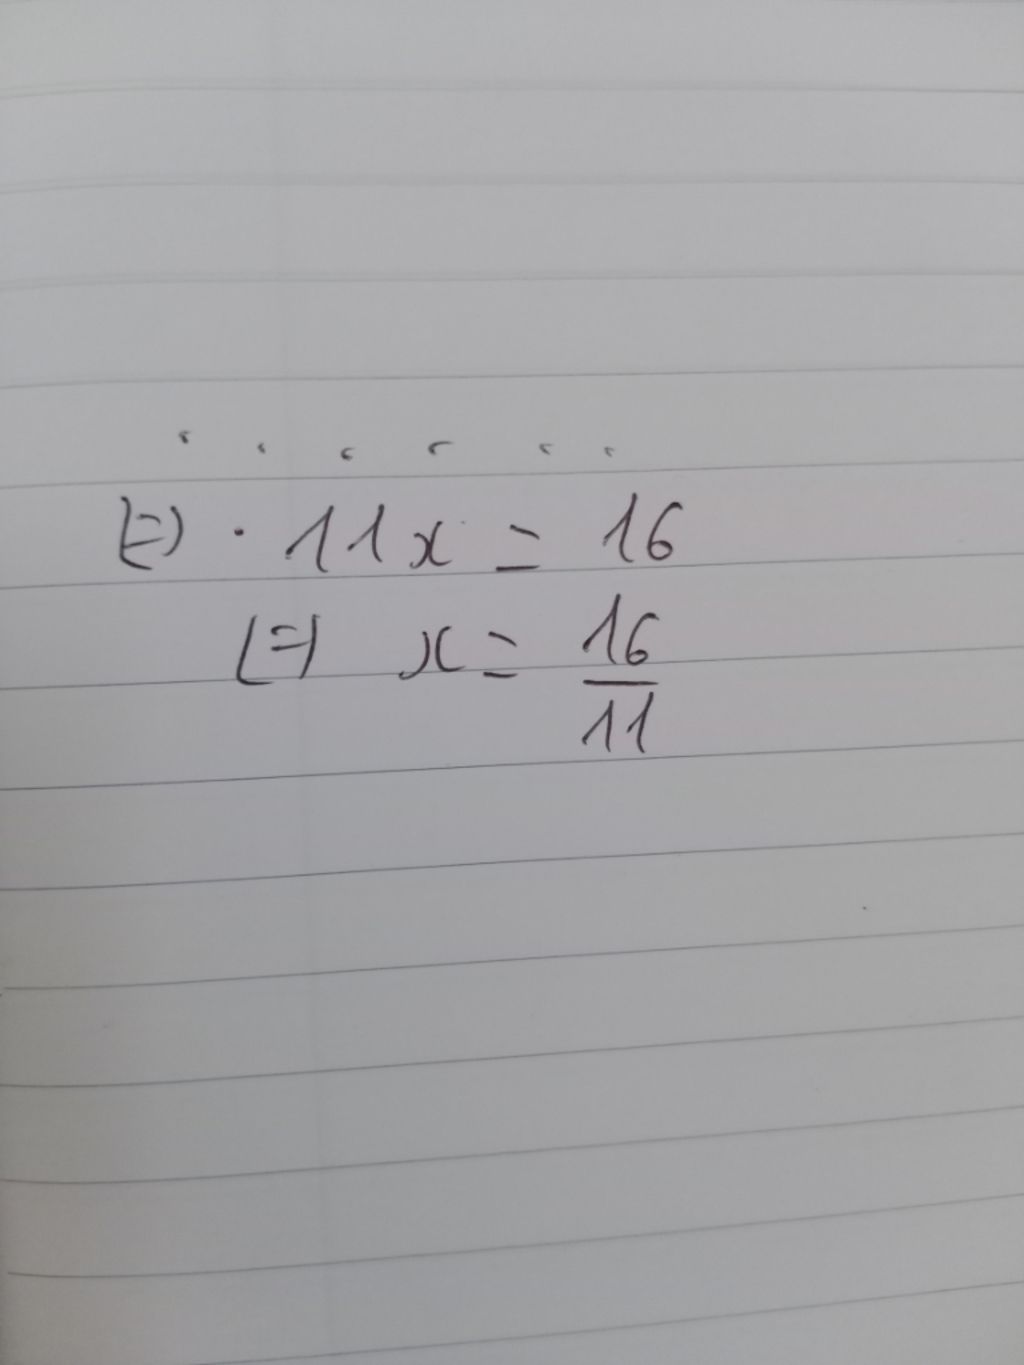 . . . . . .
(=) · 11x = 16
(=) x = 16/11